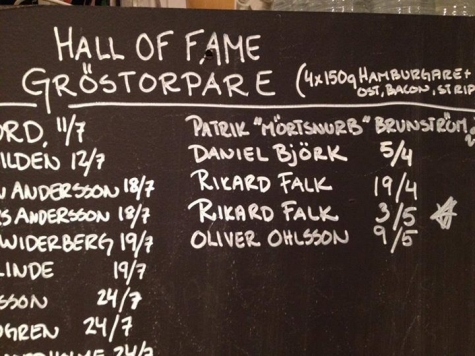 HALL OF FAME
GRÖSTORPARE (4x150g HAMBURGARE+
OST, BACON, STRIP
ORD. 11/7
ILDEN 12/7
N ANDERSSON 18/7
S ANDERSSON 18/7
WIDERBERG 19/7
LINDE 19/7
SSON 24/7
GREN 24/7
24/7
PATRIK "MÖRTSNURB" BRUNSTRÖM
DANIEL BJÖRK 5/4
RIKARD FALK 19/4
RIKARD FALK 3/5
OLIVER OHLSSON 9/5